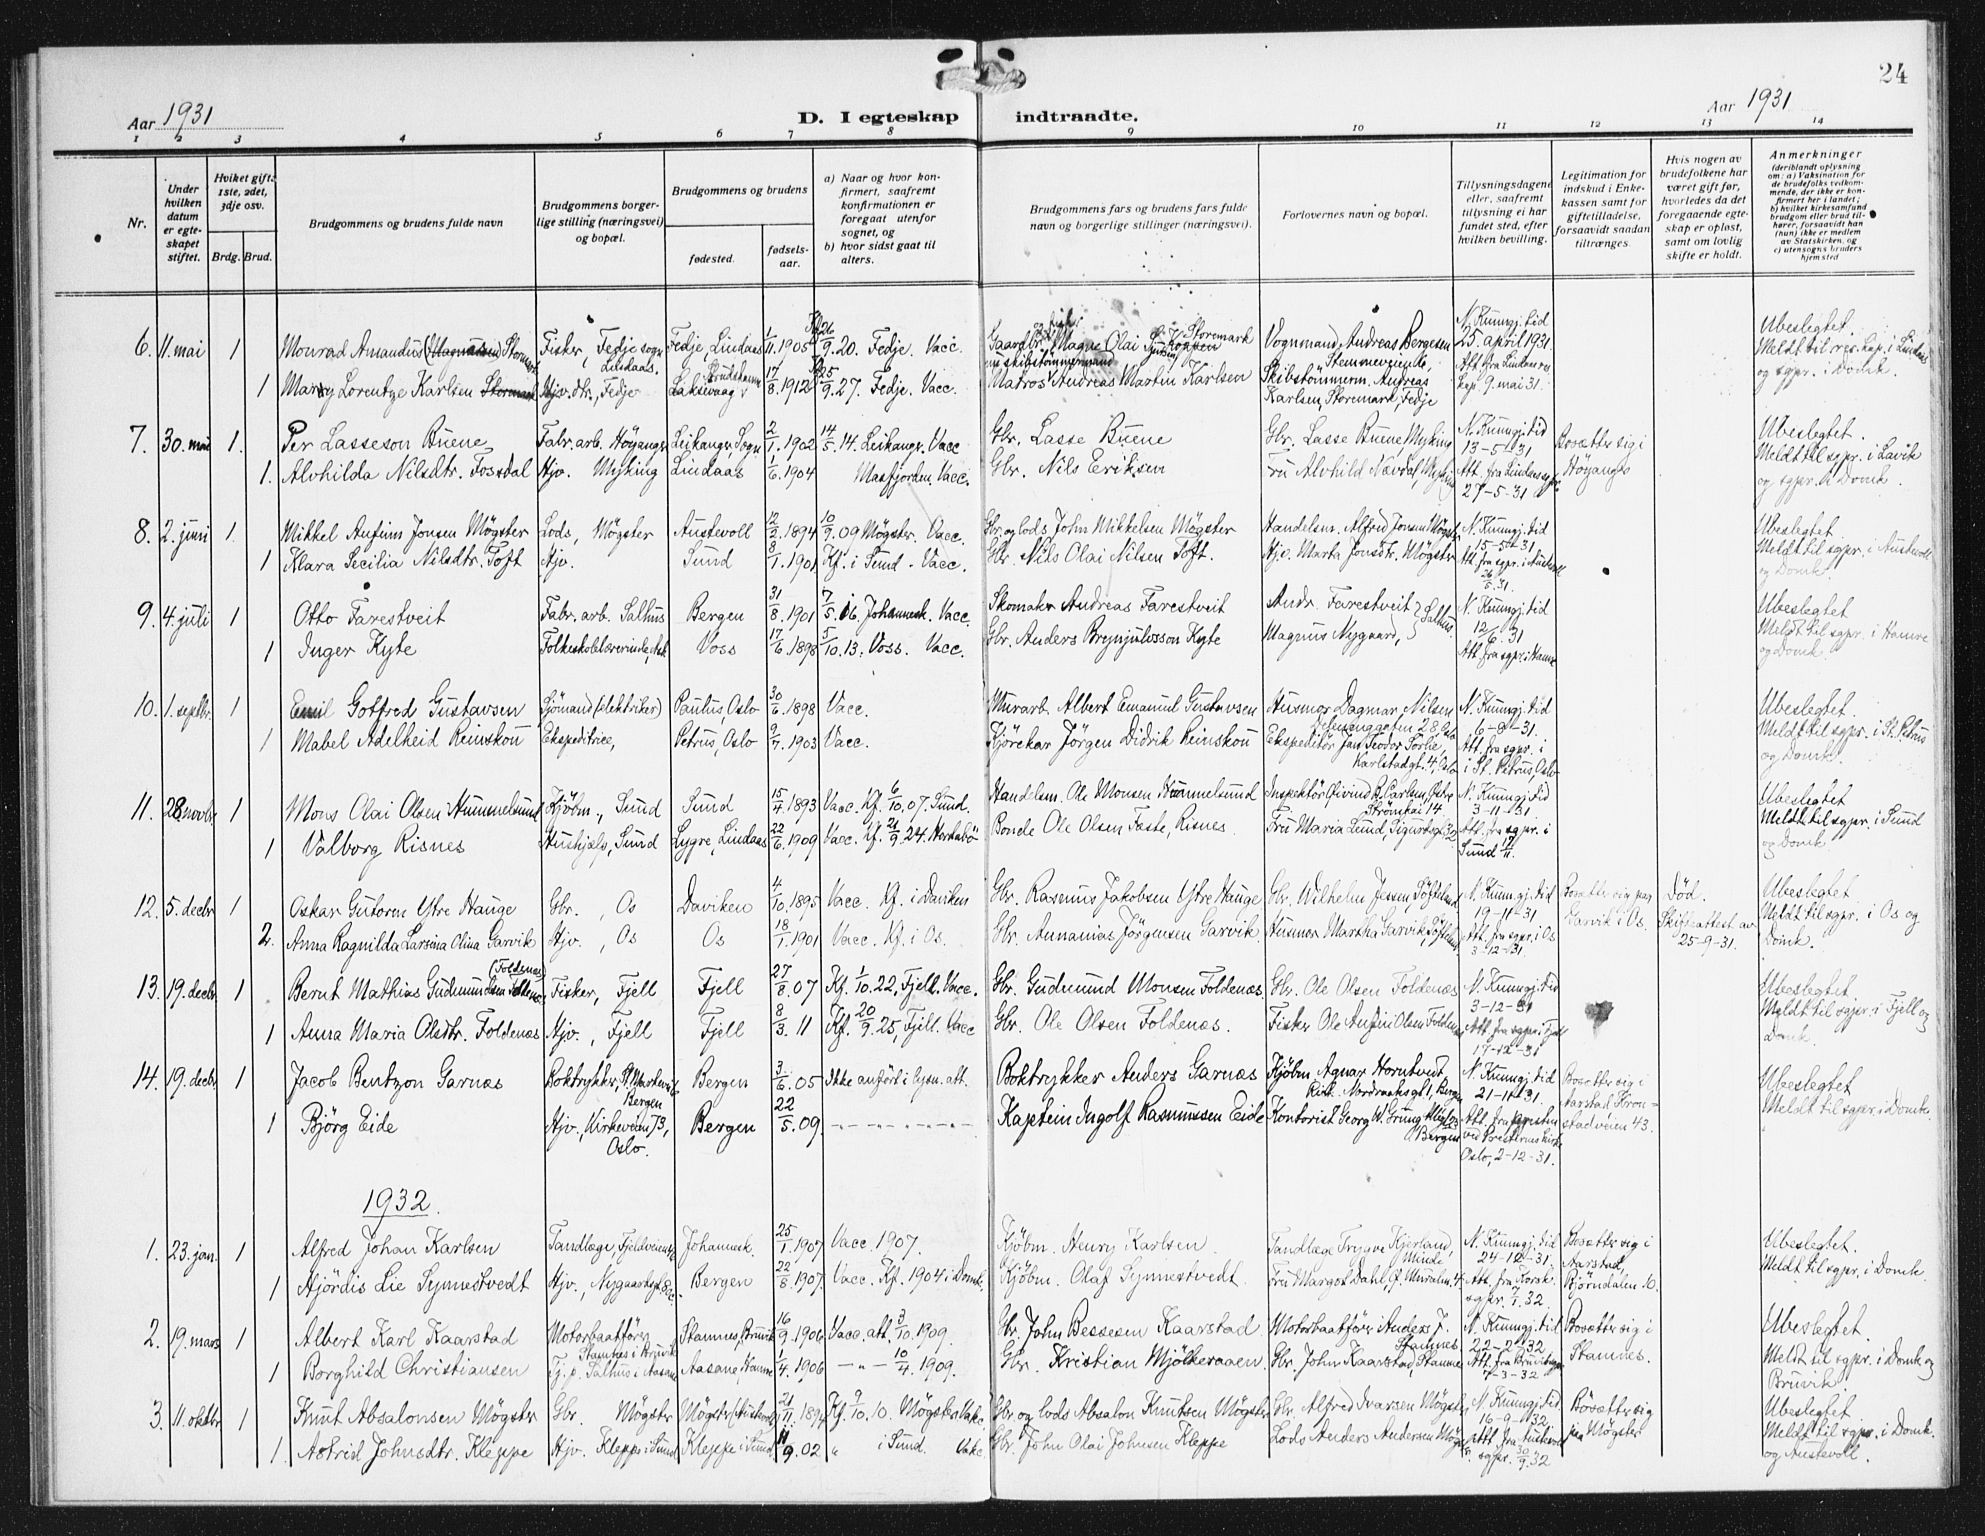 24
Aar 1931
D. I egteskap indtraadte.
Aar 1931
1 2 3 4 5 6 7 8 9 10 11 12 13 14
Nr.
Under hvilken datum er egteskapet stiftet.
Hvilket gift: 1ste, 2det, 3dje osv.
Brdg. Brud.
Brudgommens og brudens fulde navn
Brudgommens borgerlige stilling (næringsvei) og bopæl.
Brudgommens og brudens
fødested.
fødselsaar.
a) Naar og hvor konfirmert, saafremt konfirmationen er foregaat utenfor sognet, og
b) hvor sidst gaat til alters.
Brudgommens fars og brudens fars fulde navn og borgerlige stillinger (næringsvei).
Forlovernes navn og bopæl.
Tillysningsdagene eller, saafremt tillysning ei har fundet sted, efter hvilken bevilling.
Legitimation for indskud i Enkekassen samt for giftetilladelse, forsaavidt saadan tiltrænges.
Hvis nogen av brudefolkene har været gift før, hvorledes da det foregaaende egteskap er opløst, samt om lovlig skifte er holdt.
Anmerkninger (deriblandt oplysning om: a) Vaksination for de brudefolks vedkommende, der ikke er konfirmert her i landet; b) hvilket kirkesamfund brudgom eller brud tilhører, forsaavidt han (hun) ikke er medlem av Statskirken, og c) utensogns bruders hjemsted
6. 11. mai 1 Monrad Amandus (Magnussen) Stormark Fisker, Fedje sogn, Lindaas. Fedje, Lindaas 1/11. 1905 Kf. 26/9. 20. Fedje. Vacc. Gaardbr. Magne Olai Storemark Vognmand Andreas Bergesen Stemmeveiende, N. Kunngj. tid 25. april 1931 Ubeslegtet.
1 Mary Lorentze Karlsen Hjv. dtr., Fedje Laksevaag 17/8. 1912 Kf. 25/9. 27. Fedje. Vacc. Matros Andreas Martin Karlsen Skibstømmerm. Andreas Karlsen, Storemark, Fedje Att. fra Lindaas res. kap. 9. mai 31. Meldt til res. kap. i Lindaas og sgpr. i Domk.
7. 30. mai 1. Per Lasseson Buene Fabr. arb. Höyanger Leikanger, Sogn 2/1. 1902 14/5. 14. Leikanger. Vacc. Gbr. Lasse Buene Gbr. Lasse Buene Myking N. Kunngj. tid 13-5-31 Bosætter sig i Höyanger Ubeslegtet.
1. Alvhilda Nilsdtr. Fossdal Hjv. Myking Lindaas 1/6. 1904 Masfjorden. Vacc. Gbr. Nils Eriksen Fru Alvhild Nævdal, Myking Att. fra Lindaas sgpr. 27-5-31 Meldt til sgpr. i Lavik og sgpr. i Domk.
8. 2. juni 1. Mikkel Anfinn Jonsen Møgster Lods, Møgster Austevoll 12/2. 1894 10/9. 09 Møgster. Vacc. Gbr. og lods John Mikkelsen Møgster Handelsm. Alfred Jonsen Møgster N. Kunngj. tid 15-5-31 Ubeslegtet
1 Klara Secilia Nilsdtr. Toft Hjv. Sund 8/1. 1901 Kf. i Sund. Vacc. Gbr. Nils Olai Nilsen Toft. Hjv. Marta Jonsdtr. Møgster Att. fra sgpr. i Austevoll 26/5. 31 Meldt til sgpr. i Austevoll og Domk.
9. 4. juli 1 Otto Farestveit Fabr. arb. Salhus Bergen 31/8. 1901 7/5. 16. Johannesk. Vacc. Skomaker Andreas Farestveit Andr. Farestveit } Salhus. N. Kunngj. tid 12/6. 31 Ubeslegtet
1 Inger Kyte Folkeskolelærerinde, Ask Voss 17/6. 1898 5/10. 13. Voss. Vacc. Gbr. Anders Brynjulvsson Kyte Magnus Nygaard, Att. fra sgpr. i Hamre Meldt til sgpr. i Hamre og Domk.
10. 1. septbr. 1 Emil Gotfred Gustavsen Sjömand (elektriker) Paulus, Oslo 30/6. 1898 Vacc. Murarb. Albert Emanuel Gustavsen Husmor Dagmar Nilsen 28, Oslo N. Kunngj. tid 6-8-31. Ubeslegtet
1 Mabel Adelheid Reinskou Ekspeditrice, Petrus, Oslo 9/7. 1903 Vacc. Kjörekar Jörgen Didrik Reinskou Ekspeditör Jan Teodor Torlie, Karlstadgt. 4, Oslo Att. fra sgpr. i St. Petrus, Oslo Meldt til sgpr. i St. Petrus og Domk.
11. 28 novbr 1 Mons Olai Olsen Hummelsund Kjöbm., Sund Sund 15/4. 1893 Vacc. Kf. 6/10. 07. Sund. Handelsm. Ole Monsen Hummelsund Inspektör Eivind R. Carlsen, Strömkai 14 N. Kunngj. tid 3-11-31. Ubeslegtet
1 Valborg Risnes Hushjælp, Sund Lygre, Lindaas 22/6. 1909 Vacc. Kf. 21/9. 24. Herdla Bonde Ole Olsen Faste, Risnes. Fru Maria Lund, Sigurdsgt. 32 Att. fra sgpr. i Sund 17/11. Meldt til sgpr. i Sund og Domk
12. 5. decbr 1 Oskar Gutorm Ytre Hauge Gbr., Os Daviken 4/10. 1895 Vacc. Kf. i Daviken Gbr. Rasmus Jakobsen Ytre Hauge Gbr. Wilhelm Jessen, Töfteland N. Kunngj. tid 19-11-31 Bosætter sig paa Garvik i Os. Död. Ubeslegtet
2. Anna Ragnilda Larsina Olina Garvik Hjv., Os Os 18/1. 1901 Vacc. Kf. i Os. Gbr. Annanias Jörgensen Garvik Husmor Martha Garvik, Töfteland Att. fra sgpr. i Os 3-12-31. Skifteattest av 25-9-31. Meldt til sgpr. i Os og Domk.
13. 19. decbr 1 Bernt Mathias Gudmundsen Foldenæs (Foldenæs) Fisker, Fjell Fjell 27/8. 07 Kf. 1/10. 22, Fjell. Vacc. Gbr. Gudmund Monsen Foldenæs. Gbr. Ole Olsen Foldenæs N. Kunngj. tid 3-12-31 Ubeslegtet
1 Anna Maria Olsdtr. Foldenæs Hjv., Fjell Fjell 8/3. 11 Kf. 20/9. 25, Fjell. Vacc Gbr. Ole Olsen Foldenæs. Fisker Ole Anfin Olsen Foldenæs Att. fra sgpr. i Fjell 17-12-31 Meldt til sgpr. i Fjell og Domk.
14. 19. decbr 1 Jacob Bentzon Garnæs Boktrykker, St. Markevei Bergen Bergen 3/6. 05 Ikke anfört i lysn. att. Boktrykker Anders Garnæs Kjöbm. Agnar Horntvedt, Rik. Nordraaksgt. 1, Bergen N. Kunngj. tid 21-11-31. Bosætter sig i Aarstad Kronstadveien 43. Ubeslegtet
1 Björg Eide Hjv., Kirkeveien 73, Oslo. Bergen 22/5. 09. - - - - - - Kaptein Ingolf Rasmussen Eide Kontorist Georg W. Grung, Bergen Att. fra presten ved Presternes kirke Oslo, 2-12-31. Meldt til sgpr. i Domk.
1932.
1. 23. jan. 1 Alfred Johan Karlsen Tandlæge, Fjeldveien Johannesk. 25/1. 1907 Vacc. 1907. Kjöbm. Henry Karlsen. Tandlæge Trygve Kjerland, Minde N. Kunngj. tid 24-12-31. Bosætter sig i Aarstad, Björndalen 10. Ubeslegtet.
1 Hjördis Lie Synnestvedt Hjv., Nygaardsgt. Bergen 22/8. 1907. Vacc. Kf. 1904 i Domk. Kjöbm. Olaf Synnestvedt. Fru Margot Dahl, Att. fra Korsk. sgpr. 7/1. 32. Meldt til sgpr. i Domk.
2. 19. mars 1 Albert Karl Kaarstad Motorbaatförer Stamnes i Bruvik Stamnes, Bruvik 16/9. 1906 Vacc. att. 3/10. 1909. Gbr. John Bessesen Kaarstad Motorbaatförer Anders J. Stamnes N. Kunngj. tid 22-2-32 Bosætter sig i Stamnes. Ubeslegtet.
1 Borghild Christiansen Tj. p. Salhus i Aasane Aasane, Hamre 1/4. 1906 -"- 10/4. 1909. Gbr. Kristian Mjölkeraaen. Gbr. John Kaarstad, Stamnes Att. fra Bruvik sgpr. 7-3-32 Meldt til sgpr. i Domk og Bruvik
3. 11. oktbr 1 Knut Absalonsen Møgster Gbr. Møgster Møgster i Austevoll 21/11. 1894 Kf. 9/10. 10. Møgster Vakc. Gbr og lods Absalon Knutsen Møgster Gbr Alfred Ivarsen Møgster N. Kunngj. tid. 16-9-32. Bosætter sig paa Møgster Ubeslegtet
1 Astrid Johnsdtr. Kleppe Hjv. Kleppe i Sund Kleppe i Sund 11/9. 02 " i Sund. Vakc. Gbr. John Olai Johnsen Kleppe Lods Anders Andersen Møgster Att. fra Austevoll sgpr. 30/9. 32 Meldt til sgpr. i Domk. og Austevoll.